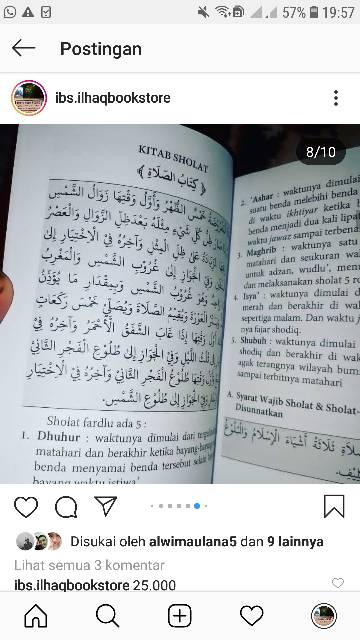 57% 19:57
Postingan
ibs.ilhaqbookstore
8/10
KITAB SHOLAT
﴿ كِتَابُ الصَّلَاةِ ﴾
خَمْسٌ الظُّهْرُ وَأَوَّلُ وَقْتِهَا زَوَالُ الشَّمْسِ
ظِلُّ كُلِّ شَيْءٍ مِثْلَهُ بَعْدَ ظِلِّ الزَّوَالِ وَالْعَصْرُ
الزِّيَادَةُ عَلَى ظِلِّ الْمِثْلِ وَآخِرُهُ فِي الِاخْتِيَارِ إِلَى
وَفِي الْجَوَازِ إِلَى غُرُوبِ الشَّمْسِ وَالْمَغْرِبُ
وَهُوَ غُرُوبُ الشَّمْسِ وَبِمِقْدَارِ مَا يُؤَذِّنُ
الْعَوْرَةَ وَيُقِيمُ الصَّلَاةَ وَيُصَلِّي خَمْسَ رَكَعَاتٍ
وَقْتِهَا إِذَا غَابَ الشَّفَقُ الْأَحْمَرُ وَآخِرُهُ فِي
ثُلُثِ اللَّيْلِ وَفِي الْجَوَازِ إِلَى طُلُوعِ الْفَجْرِ الثَّانِي
وَقْتِهَا طُلُوعُ الْفَجْرِ الثَّانِي وَآخِرُهُ فِي الِاخْتِيَارِ
وَفِي الْجَوَازِ إِلَى طُلُوعِ الشَّمْسِ.
Sholat fardlu ada 5 :
1. Dhuhur : waktunya dimulai dari
matahari dan berakhir ketika bayang-bayang
benda menyamai benda tersebut selain
bayang waktu istiwa'
2. 'Ashar : waktunya dimulai
suatu benda melebihi benda
di waktu ikhtiyar ketika
benda menjadi dua kali lipat
waktu jawaz sampai terbena
3. Maghrib : waktunya satu
matahari dan seukuran wa
untuk adzan, wudlu', mem
dan melaksanakan sholat 5 ro
4. Isya' : waktunya dimulai d
merah dan berakhir di wak
sepertiga malam. Dan waktu j
nya fajar shodiq.
5. Shubuh : waktunya dimulai
shodiq dan berakhir di wak
agak terangnya wilayah bum
sampai terbitnya matahari
A. Syarat Wajib Sholat & Sholat-
Disunnatkan
ثَلَاثَةُ أَشْيَاءَ الْإِسْلَامُ وَالْبُلُوغُ
Disukai oleh alwimaulana5 dan 9 lainnya
Lihat semua 3 komentar
ibs.ilhaqbookstore 25.000